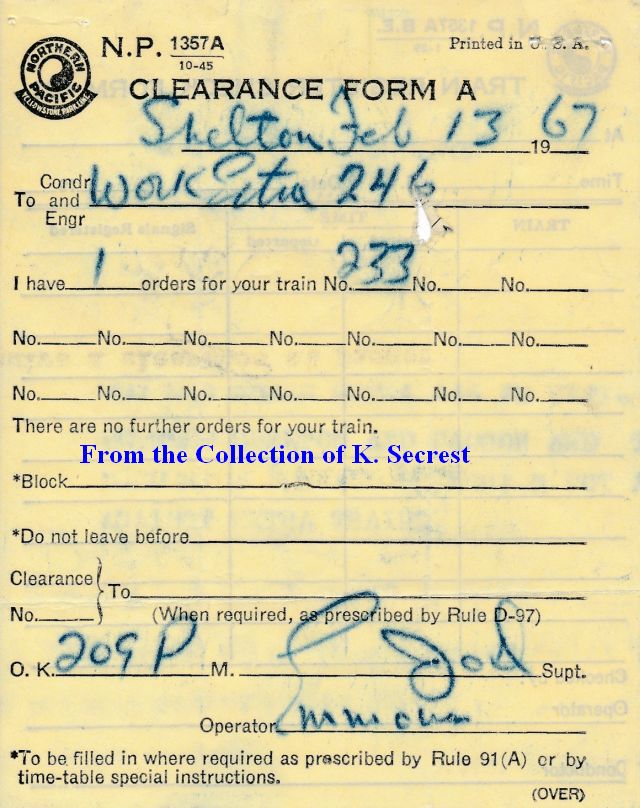 NORTHERN PACIFIC
YELLOWSTONE PARK LINE
N.P. 1357A
10-45
Printed in U. S. A.
CLEARANCE FORM A
Shelton Feb 13 1967
To Condr and Engr Work Extra 246
I have 1 orders for your train No. 233 No. No.
No. No. No. No. No. No. No.
No. No. No. No. No. No. No.
There are no further orders for your train.
From the Collection of K. Secrest
*Block
*Do not leave before
Clearance No. } To
(When required, as prescribed by Rule D-97)
O. K. 209 P M. Supt.
Operator
*To be filled in where required as prescribed by Rule 91(A) or by
time-table special instructions.
(OVER)